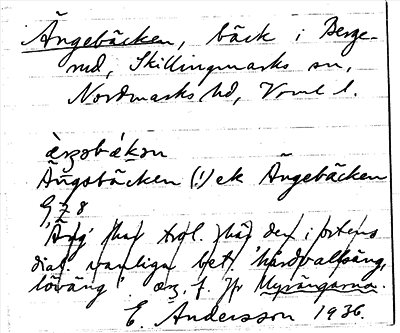 Ängebäcken, bäck i Berge-
rud, Skillingmarks sn,
Nordmarks hd, Vrml l.
Ängsbäcken (!) ek Ängebäcken
'Äng' har trol. här den i ortens
dial. vanliga bet. 'hårdvallsäng,
löväng'. f. Jfr Myrängarna.
E. Andersson 1936.